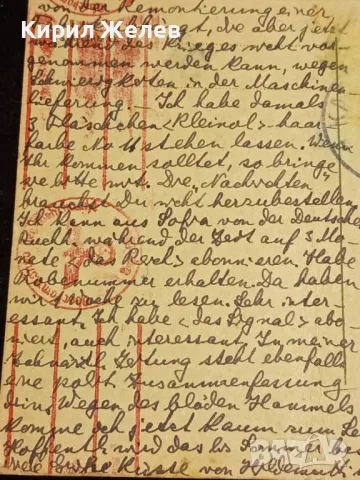 Кирил Желев
von der Remontierung einer
die aber jetzt
während des Krieges nicht vor-
genommen werden kann, wegen
Schwierigkeiten in der Maschinen
lieferung. Ich habe damals
3 Fläschchen <Kleinol> haar
farbe No 11 stehen lassen. Wenn
Ihr kommen solltet, so bringe
sie bitte mit. Die "Nachrichten"
brauchst Du nicht herzubestellen
Ich kann aus Sofia von der Deutschen
während der Zeit auf 3 Mo
nate <das Reich> abonnieren. Habe
Probenummer erhalten. Da haben
wir Woche zu lesen. Sehr inter
essant. Ich habe <das Signal> abo
niert, auch interessant. In meiner
Zahnärztl. Zeitung steht ebenfalls
eine polit. Zusammenfassung
drin. Wegen des blöden Hammels
komme ich jetzt kaum zum
Hoffentl. wird das bis Sommer
viele Grüße Küsse von